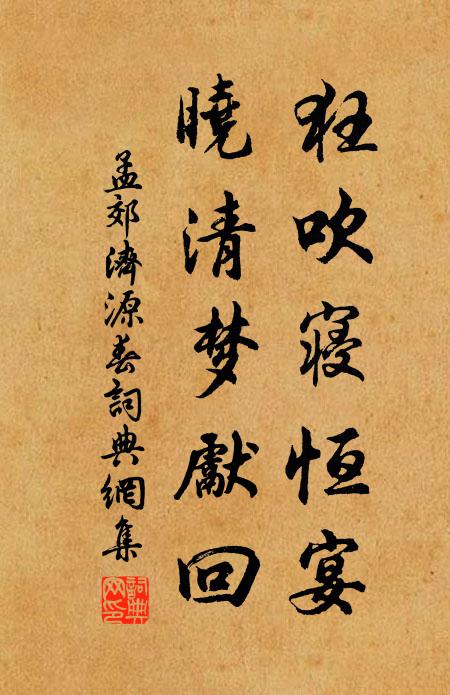 狂吹寢恒宴
曉清梦獻回
孟郊濟源春詞典網集
詞典网印